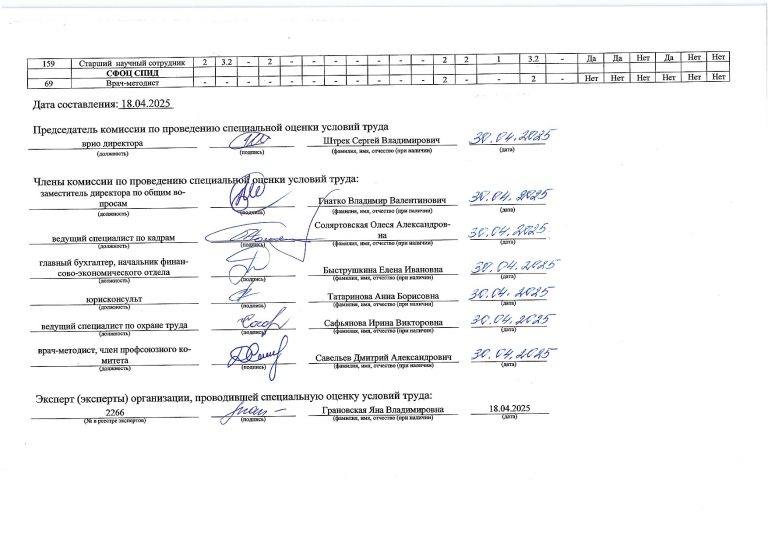 159 Старший научный сотрудник 2 3.2 - 2 - - - - - - - 2 2 1 3.2 - Да Да Нет Да Нет Нет
СФОЦ СПИД
69 Врач-методист - - - - - - - - - - - 2 - - 2 - Нет Нет Нет Нет Нет Нет
Дата составления: 18.04.2025
Председатель комиссии по проведению специальной оценки условий труда
врио директора Штрек Сергей Владимирович 30.04.2025
(должность) (подпись) (фамилия, имя, отчество (при наличии) (дата)
Члены комиссии по проведению специальной оценки условий труда:
заместитель директора по общим во-
просам Гнатко Владимир Валентинович 30.04.2025
(должность) (подпись) (фамилия, имя, отчество (при наличии) (дата)
Соляртовская Олеся Александров-
ведущий специалист по кадрам на 30.04.2025
(должность) (подпись) (фамилия, имя, отчество (при наличии) (дата)
главный бухгалтер, начальник финан-
сово-экономического отдела Быструшкина Елена Ивановна 30.04.2025
(должность) (подпись) (фамилия, имя, отчество (при наличии) (дата)
юрисконсульт Татаринова Анна Борисовна 30.04.2025
(должность) (подпись) (фамилия, имя, отчество (при наличии) (дата)
ведущий специалист по охране труда Сафьянова Ирина Викторовна 30.04.2025
(должность) (подпись) (фамилия, имя, отчество (при наличии) (дата)
врач-методист, член профсоюзного ко-
митета Савельев Дмитрий Александрович 30.04.2025
(должность) (подпись) (фамилия, имя, отчество (при наличии) (дата)
Эксперт (эксперты) организации, проводившей специальную оценку условий труда:
2266 Грановская Яна Владимировна 18.04.2025
(№ в реестре экспертов) (подпись) (фамилия, имя, отчество (при наличии) (дата)